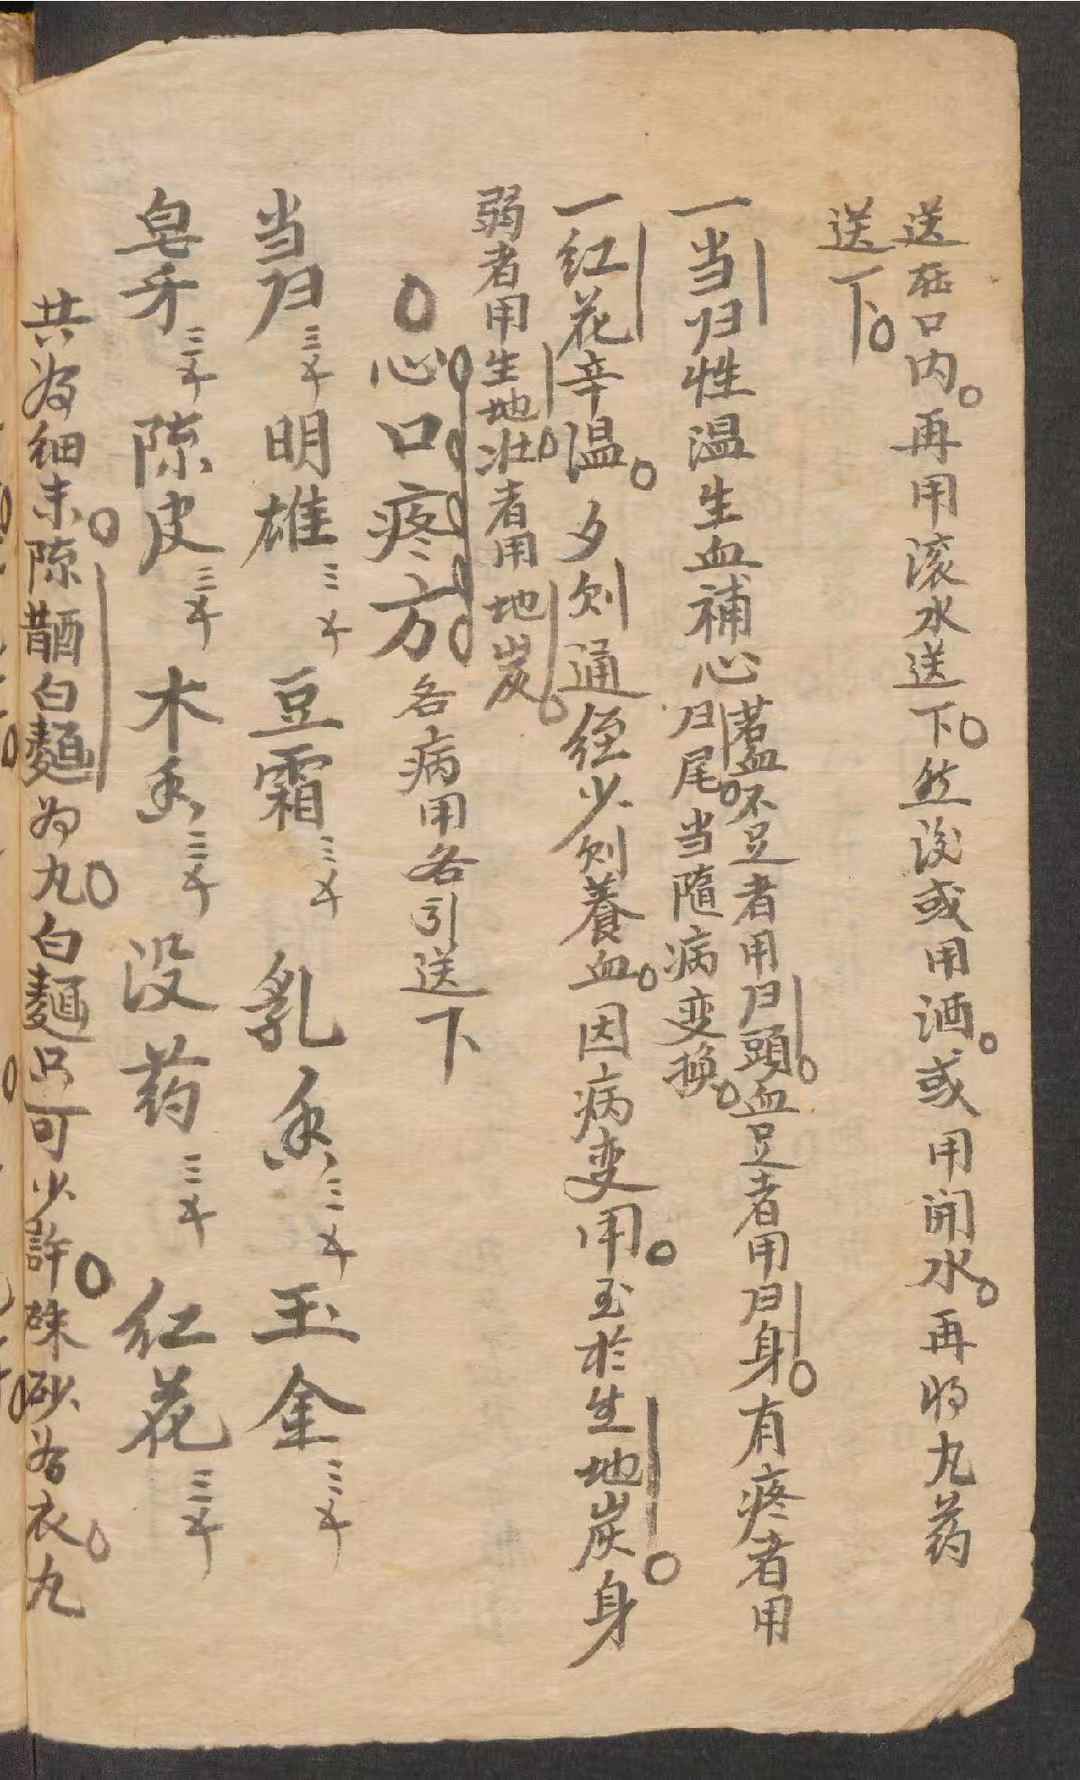 送在口内。再用滚水送下。然没或用酒。或用開水。再将丸药
送下。
一当归性温生血補心若血不足者用归頭。血足者用归身。有疼者用
归尾。当隨病变换。
一红花辛温。多则通經少则養血。因病变用。至於生地炭。身
弱者用生地。壮者用地炭。
○心口疼方各病用各引送下
当归三个明雄三个豆霜三个乳香三个玉金三个
皂牙三个陳皮三个木香三个没药三个红花三个
共为细末。陳醋白麵为丸。白麵只可少許。硃砂为衣。丸